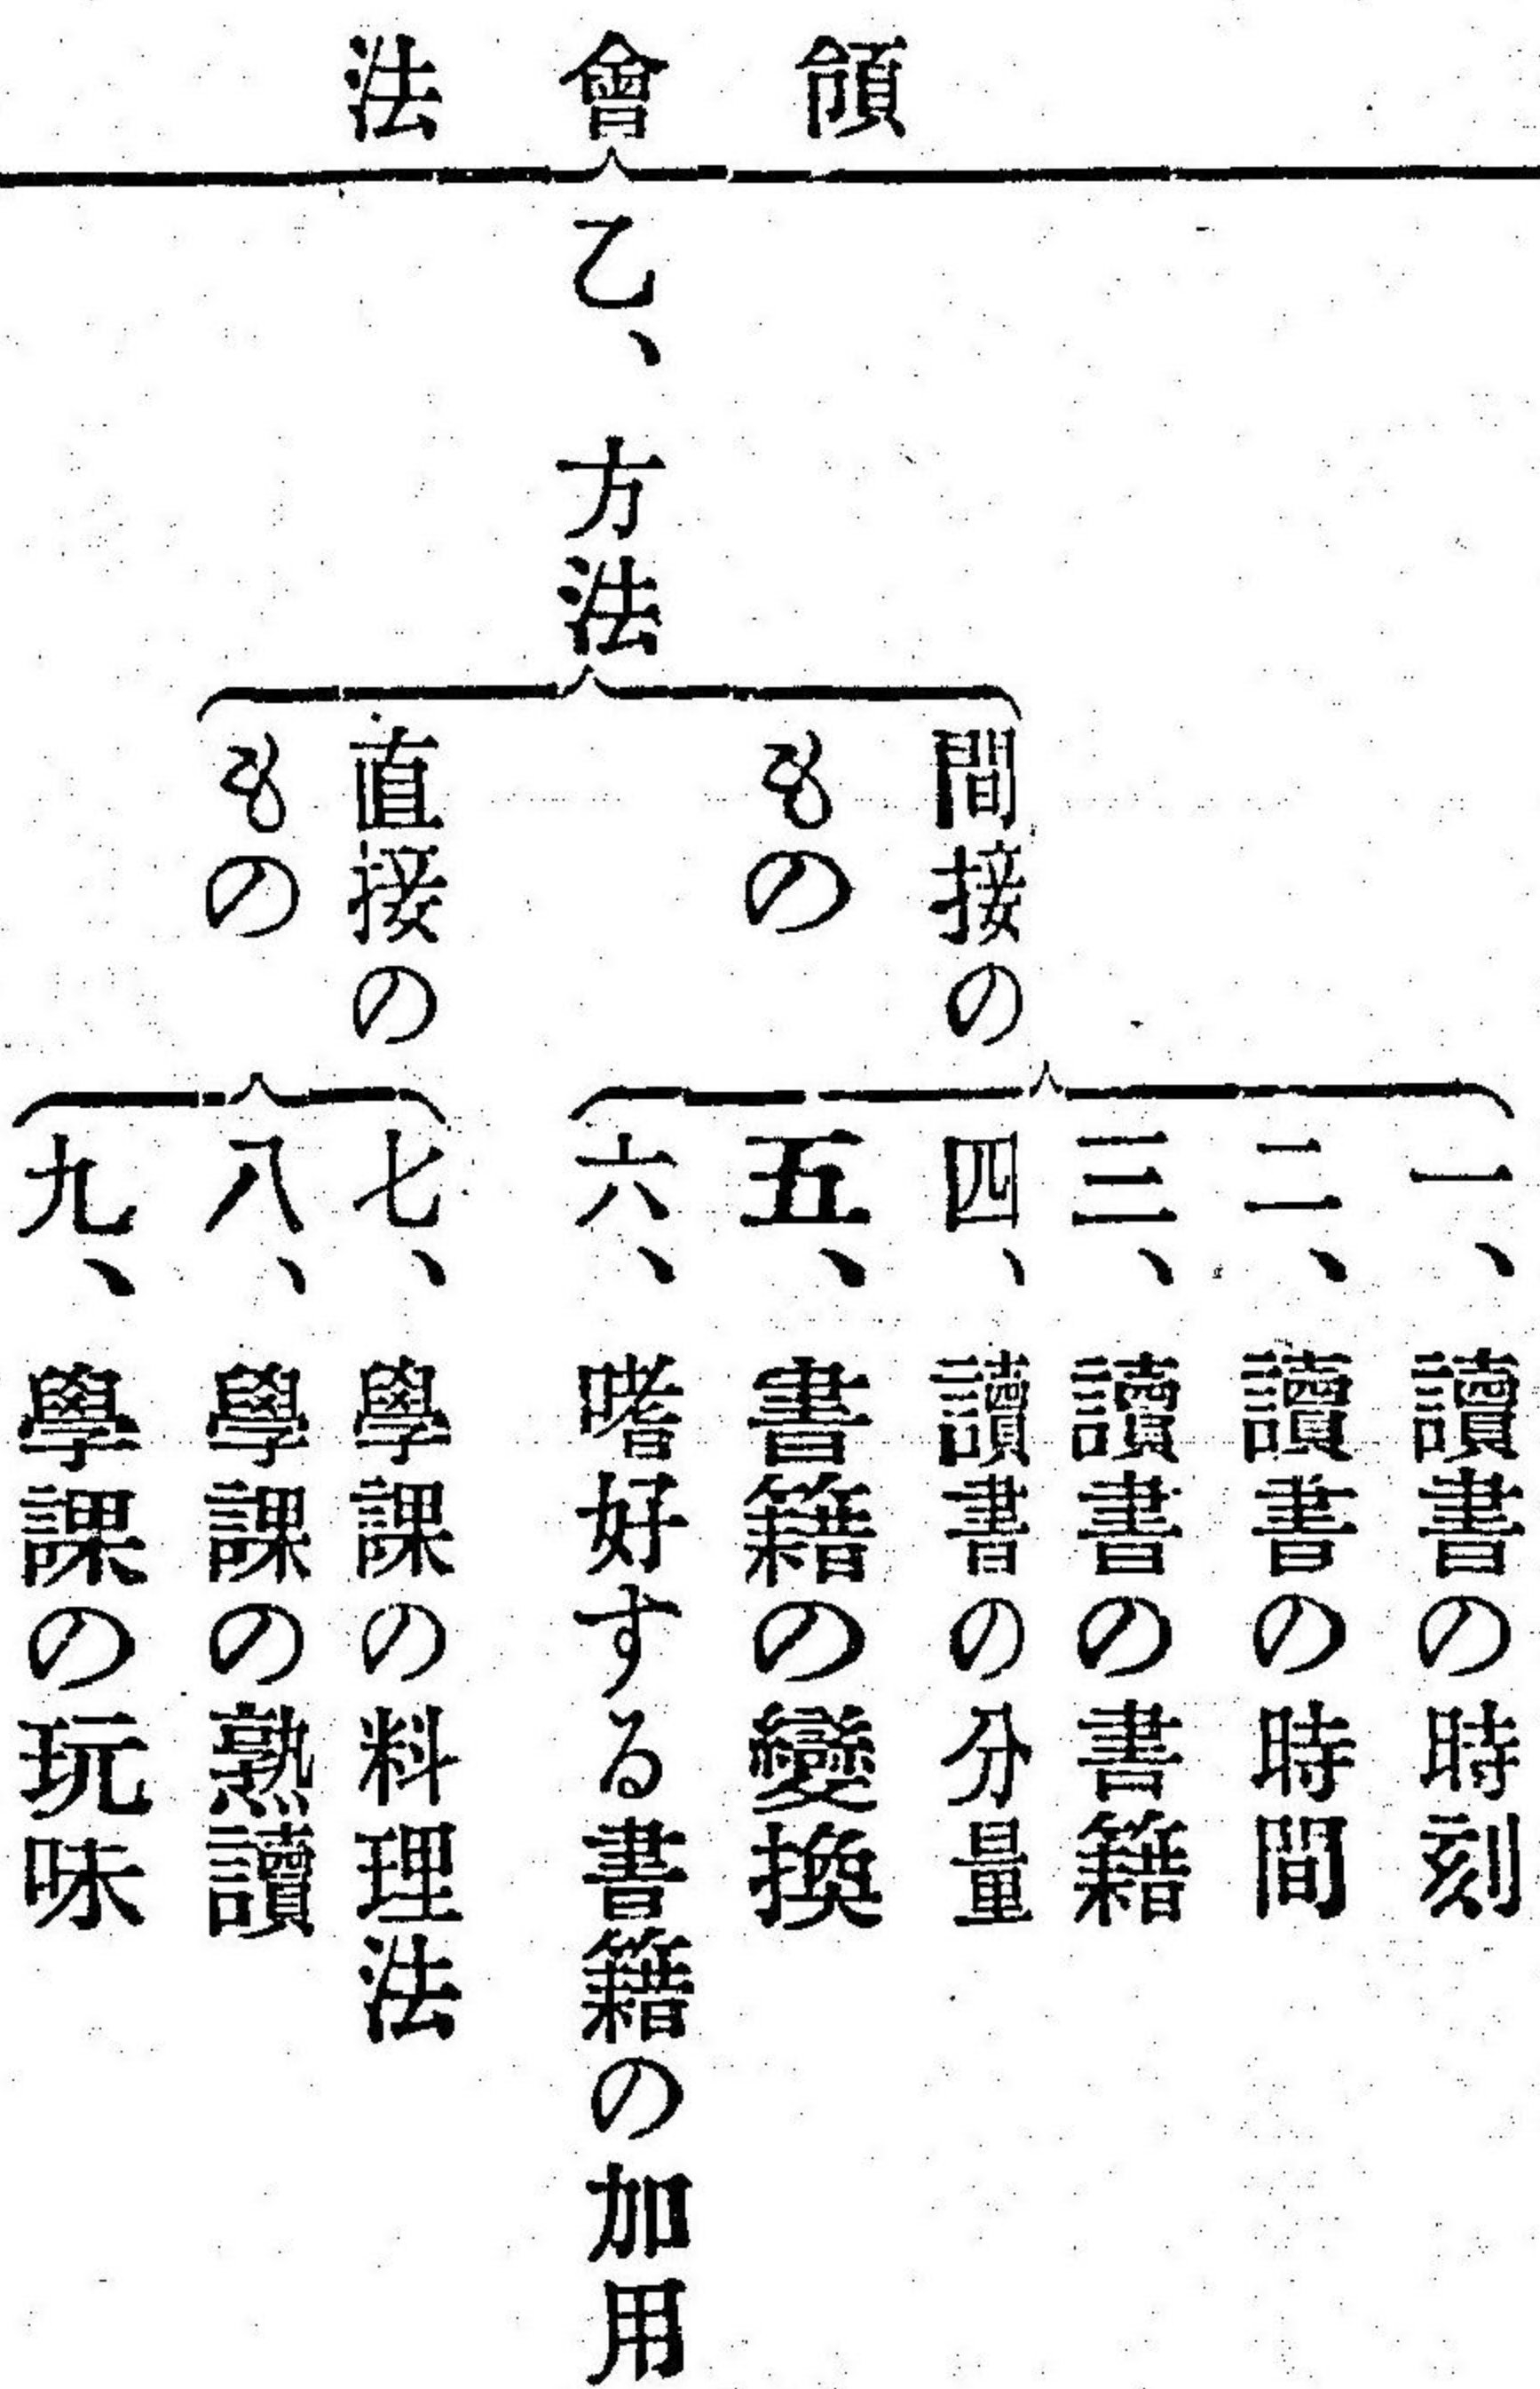 領會法
乙、方法
間接の
もの
一、讀書の時刻
二、讀書の時間
三、讀書の書籍
四、讀書の分量
五、書籍の變換
六、嗜好する書籍の加用
直接の
もの
七、學課の料理法
八、學課の熟讀
九、學課の玩味